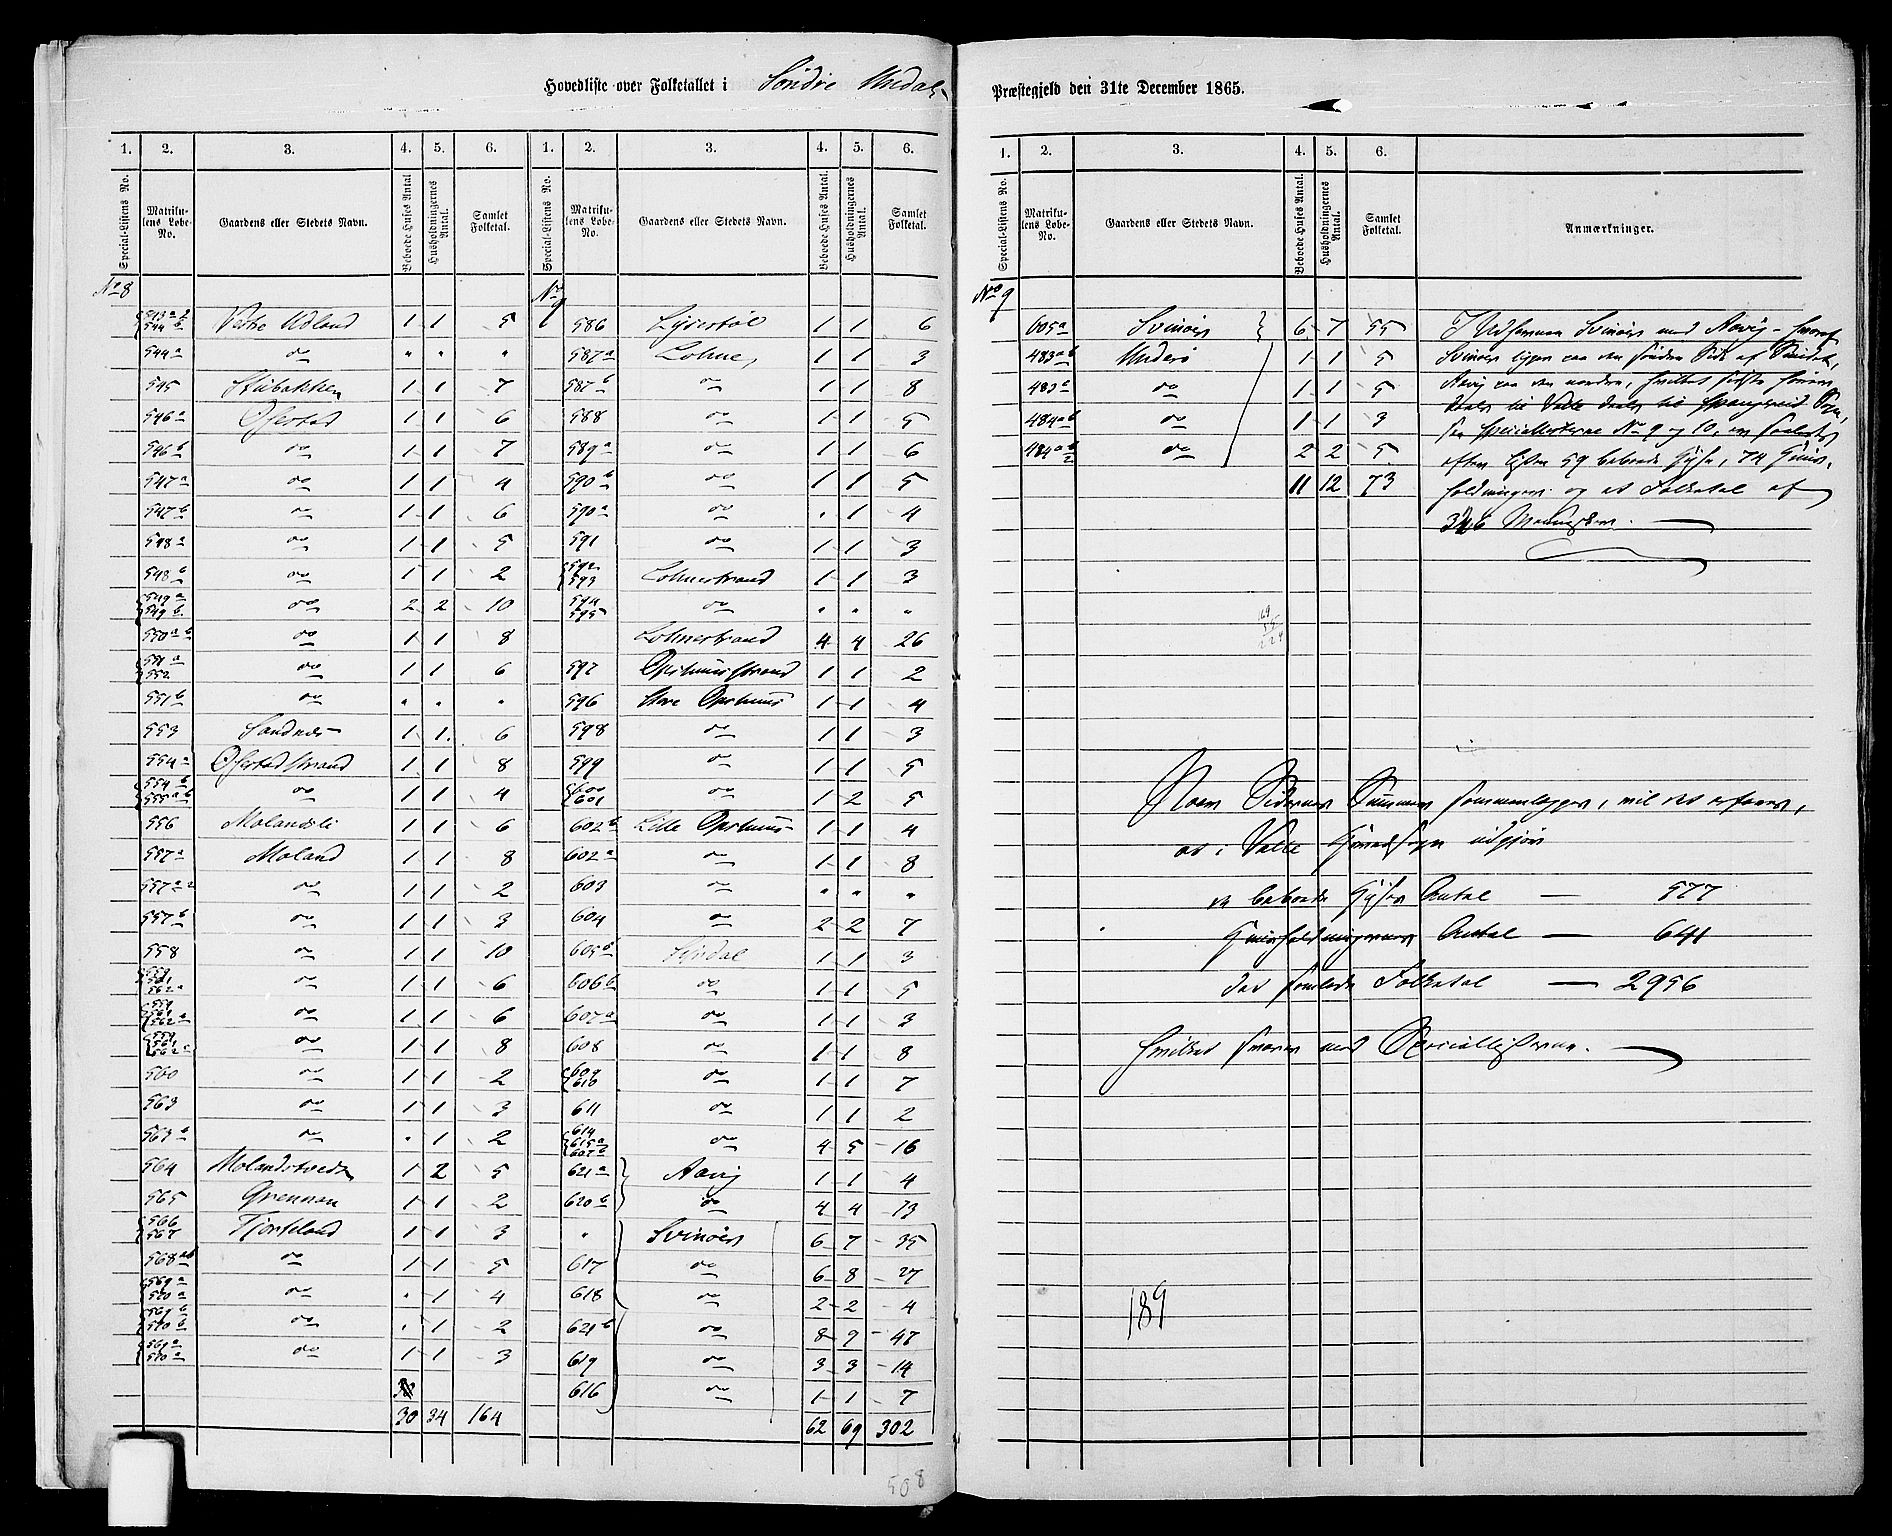 Hovedliste over Folketallet i Søndre Undals
Præstegjeld den 31te December 1865.
1. 2. 3. 4. 5. 6. 1. 2. 3. 4. 5. 6.
Special-Listens No. Matrikulens Løbe-No. Gaardens eller Stedets Navn. Beboede Huses Antal Husholdningernes Antal. Samlet Folketal. Special-Listens No. Matrikulens Løbe-No. Gaardens eller Stedets Navn. Beboede Huses Antal. Husholdningernes Antal. Samlet Folketal.
No 8 No 9
543 a 2 544 b Vestre Udland 1 1 5 586 Lyrestøl 1 1 6
544 a do " " " 587 a Lohne 1 1 3
545 Stubakken 1 1 7 587 b do 1 1 8
546 a Ofestad 1 1 6 588 do 1 1 5
546 b do 1 1 7 589 a do 1 1 6
547 a do 1 1 4 590 b do 1 1 5
547 b do 1 1 6 590 a do . 1 4
548 a do 1 1 5 591 do 1 1 3
548 b do 1 1 2 592 593 Lohnestrand 1 1 3
549 a 549 b do 2 2 10 594 595 do " " "
550 a b do 1 1 8 Lohnestrand 4 4 26
551 a 552 do 1 1 6 597 Opshuusstrand 1 1 2
551 b do " " " 596 Store Opshuus 1 1 4
553 Sandnæs 1 1 6 598 do 1 1 3
554 a Ofestadstrand 1 1 8 599 do 1 1 5
554 b 555 a b do 1 1 4 600 601 do 1 2 5
556 Molandsli 1 1 6 602 b Lille Opshuus 1 1 4
557 a Moland 1 1 8 602 a do 1 1 8
557 a 2 do 1 1 2 603 do " " "
557 b do 1 1 3 604 do 2 2 7
558 do 1 1 10 605 b 1 1 3
559 561 562 a do 1 1 6 606 b do 1 1 5
559 561 562 a do 1 1 6 607 a do 1 1 3
559 561 562 c do 1 1 8 608 do 1 1 8
560 do 1 1 2 609 610 do 1 1 7
563 do 1 1 3 611 do 1 1 2
563 a do . 1 2 614 615 a 607 b do 4 5 16
564 Molandstvedt 1 2 5 621 a Aavig 1 1 4
565 Grennan 1 1 2 620 b do 4 4 13
566 567 Fjorseland 1 1 3 " Svinøer 6 7 35
568 a b do 1 1 5 617 do 6 8 27
569 a 570 a do . 1 4 618 do 2 2 4
569 b 570 b do . 1 2 621 b do 8 9 47
569 a 570 a do 1 1 3 619 do 3 3 14
616 do 1 1 7
30 34 164 62 69 302
508
1. 2. 3. 4. 5. 6.
Special-Listens No. Matrikulens Løbe-No. Gaardens eller Stedets Navn. Beboede Huses Antal. Husholdningernes Antal. Samlet Folketal. Anmærkninger.
No 9
605 a Svinøer 6 7 55
483 a b Underø 1 1 5
483 a do 1 1 5
484 a b do 1 1 3
484 a b 2 do 2 2 5
11 12 73
I Udhavnen Svinøer med Aavig, hvoraf
Svinøer ligger paa den søndre Side af Sundet,
Aavig paa den nordre, hvilket sidste henregnes
deels til Valle deels til Spangereid Sogn,
see Speciallisterne No 9 og 10, er saaledes
efter Listen 59 beboede Huse, 74 Huus-
holdninger og et Folketal af
326 Mennesker.
169
55
224
Naar Sidernes Summer sammenlægges, vil det erfares,
at i Valle Hovedsogn udgjør
de beboede Huses Antal — 577
Huusholdningernes Antal — 641
det samlede Folketal — 2956
hvilket svarer med Speciallisterne.
189